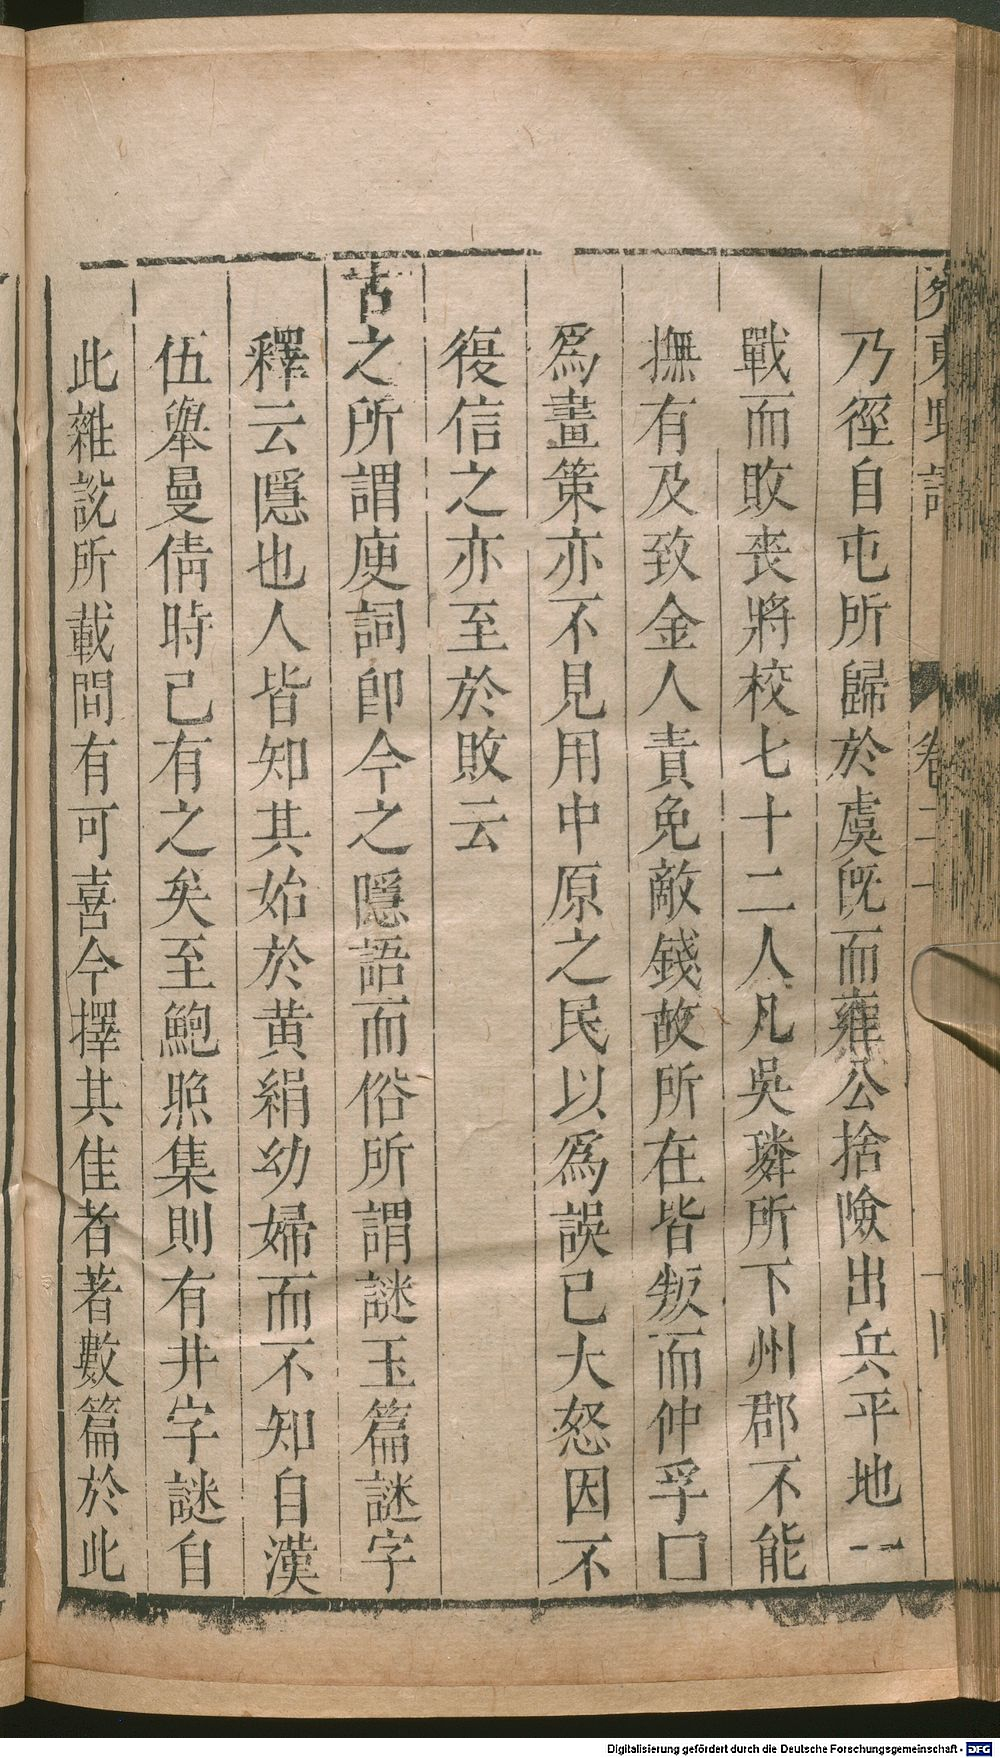 齊東野語 卷二十
乃徑自屯所歸於虞旣而雍公捨險出兵平地一
戰而敗喪將校七十二人凡吳璘所下州郡不能
撫有及致金人責免敵錢故所在皆叛而仲孚囗
爲畫策亦不見用中原之民以爲誤已大怒因不
復信之亦至於敗云
古之所謂庾詞卽今之隱語而俗所謂謎玉篇謎字
釋云隱也人皆知其始於黄絹幼婦而不知自漢
伍舉曼倩時已有之矣至鮑照集則有井字謎自
此雜説所載間有可喜今擇其佳者著數篇於此
Digitalisierung gefördert durch die Deutsche Forschungsgemeinschaft - DFG